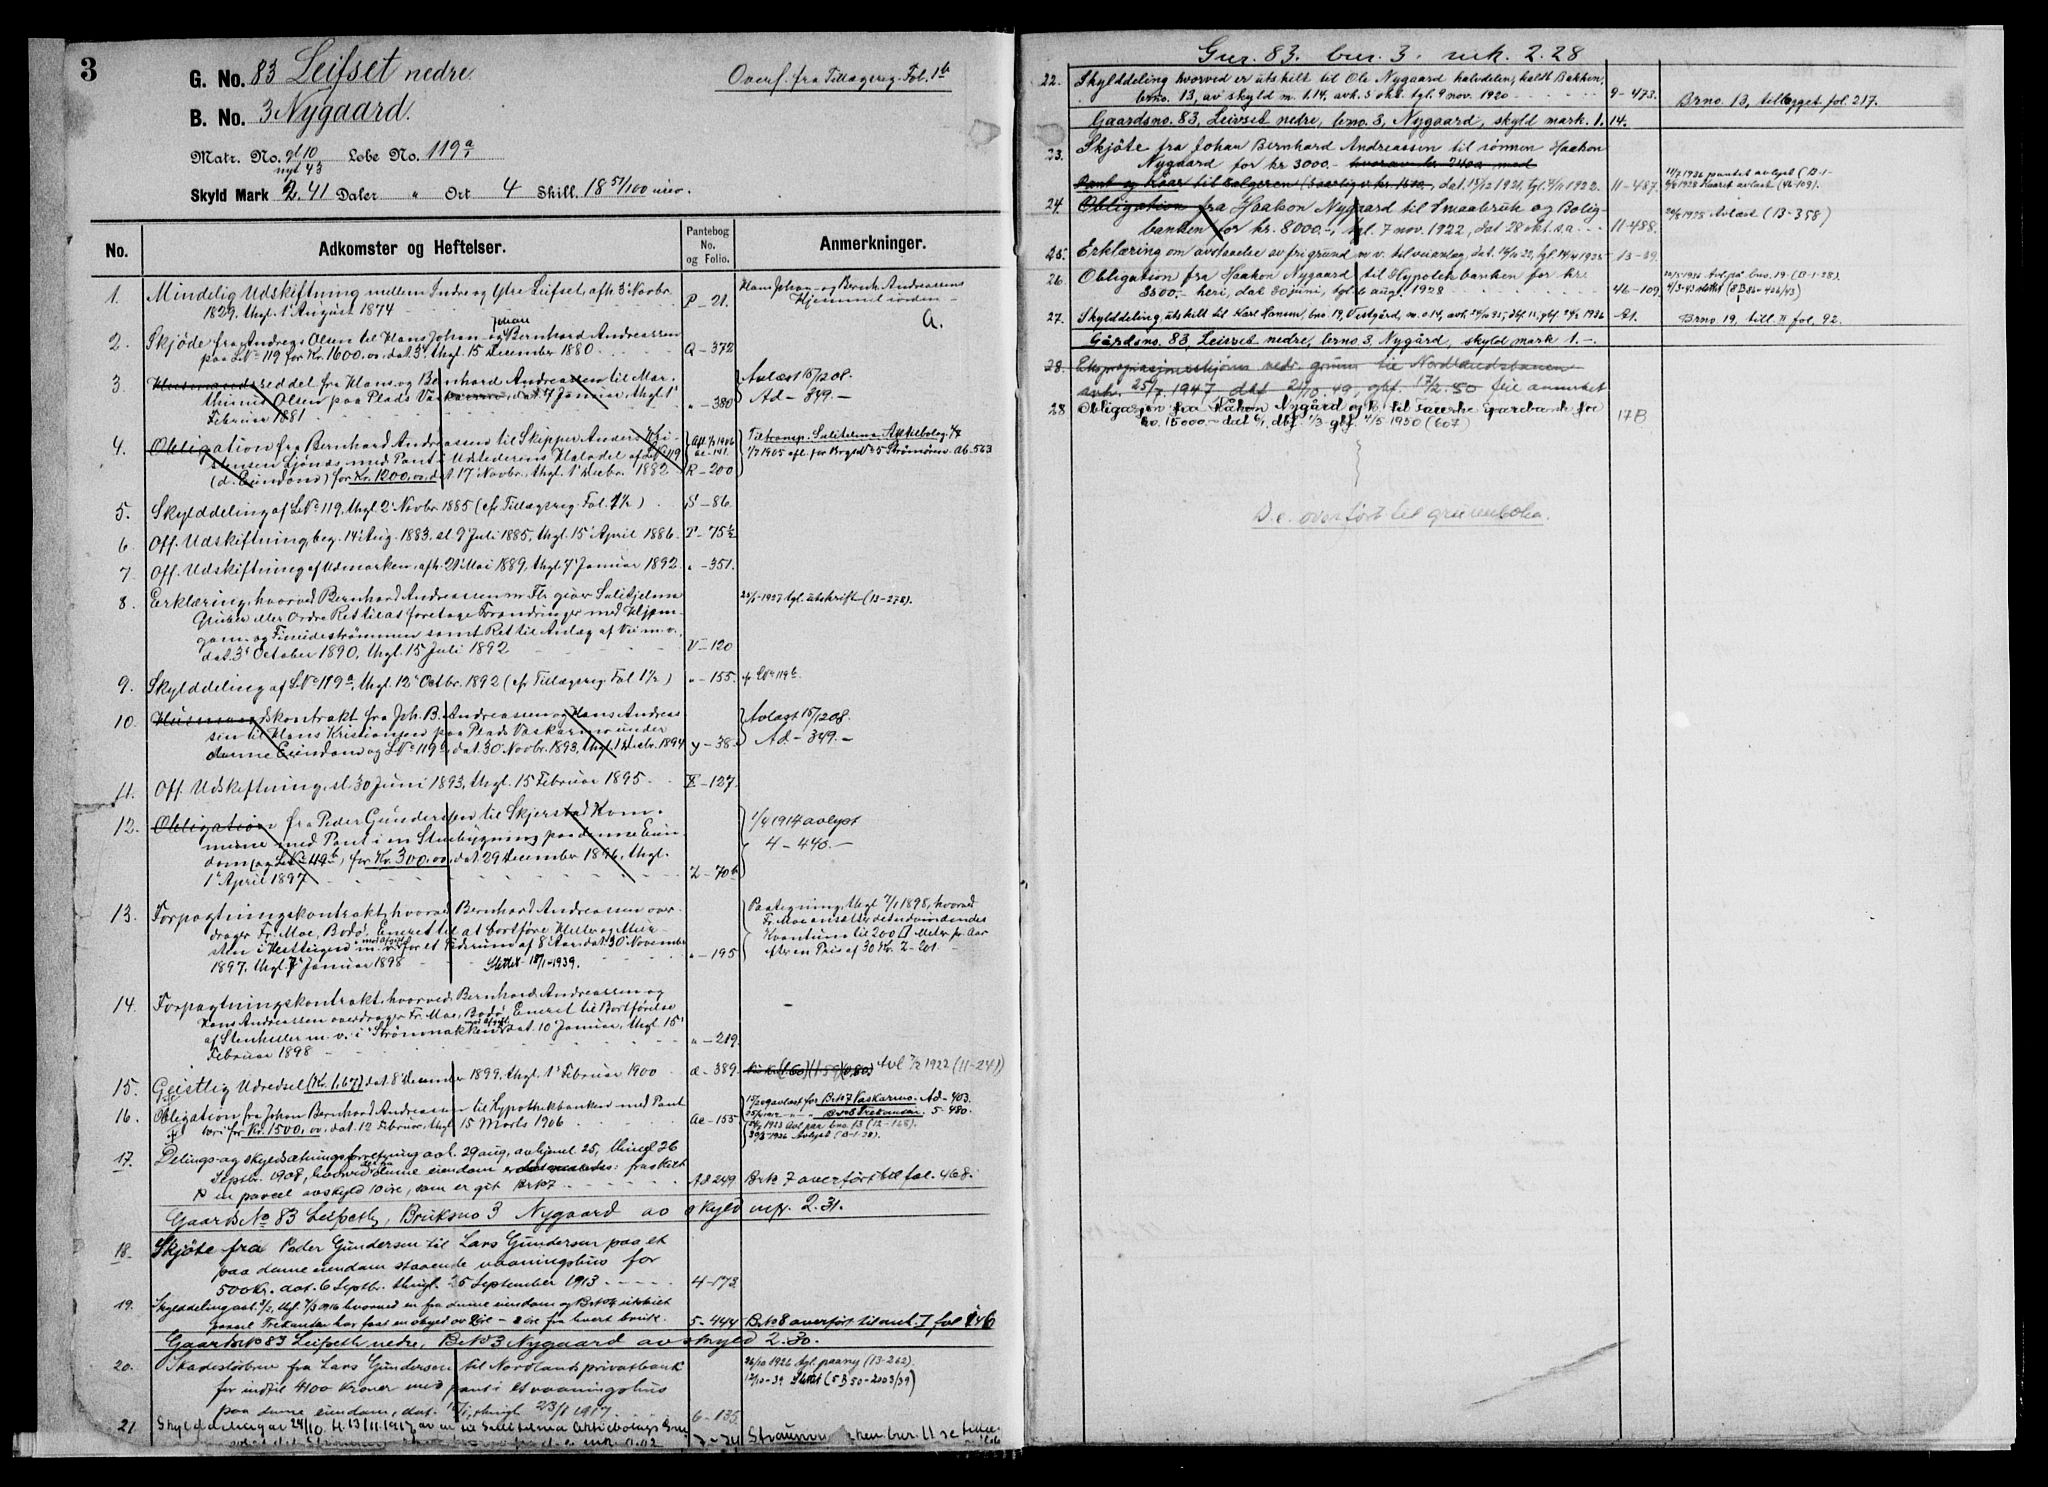 3
G. No. 83 Leifset nedre.
Overf. fra Tillægsreg. Fol. 1b
B. No. 3 Nygaard.
Matr. No. gl 10 Løbe No. 119a
nyt 43
Skyld Mark 2.41 Daler " Ort 4 Skill. 18
No. Adkomster og Heftelser. Pantebog No. og Folio. Anmerkninger.
1. Mindelig Udskiftning mellem Indre og Ytre Leifset, afh. 3 Novbr.
1829, thgl. 1 August 1874 P-21.
Hans Johan- og Bernh. Andreasens
Hjemmel
A.
2. Skjøde fra Andreas Olsen til Hans Johan- og Johan Bernhard Andreassen
paa LNo 119 for Kr. 1600,00, dat. 3, thgl. 15 December 1880 Q-372
3. Husmandsseddel fra Hans og Bernhard Andreassen til Mar-
thinus Olsen paa Plads Vaskarmo, dat. 7 Januar, thgl. 1
Februar 1881 "-380
Avlæst 15/12 08.
Ad-349.-
4. Obligation fra Bernhard Andreassen til Skipper Anders Kri-
stensen Ljönes med Pant i Udstederens Halvdel af LNo 119
(d. Eiendom) for Kr. 1200,00, dat 17 Novbr., thgl. 1 Decbr. 1882 R-200
1/7 1905 afl. for Brgs No 5 Strømören Ab. 563
5. Skylddeling af LNo 119, thgl. 2 Novbr 1885 (cfr Tillægsreg. Fol. 1½) S-86.
6. Off. Udskiftning, beg. 14 Aug. 1883, sl. 9 Juli 1885, thgl. 15 April 1886 T-75½
7. Off. Udskiftning af Udmarken, afh. 21 Mai 1889, thgl. 7 Januar 1892 "-351.
8. Erklæring, hvorved Bernhard Andreassen m. Fl. giver Sulitjelma
Gruber eller Ordre Ret til at foretage Forandringer med Hjem-
gam- og Finneidstrømmen samt Ret til Anlæg af Vei m. v.,
dat. 3 October 1890, thgl. 15 Juli 1892 V-120
1927 tgl. utskrift (13-278).
9. Skylddeling af LNo 119a, thgl. 12 Octbr. 1892 (cfr Tillægsreg. Fol 1½) "-155.
LNo 119b.
10. Husmandskontrakt fra Joh. B. Andreassen og Hans Andreas
sen til Hans Kristiansen paa Plads Vaskarmo under
denne Eiendom og LNo 119b, dat. 30 Novbr. 1893, thgl. 1 Decbr. 1894 Y-38.
Avlæst 15/12 08.
Ad-349.-
11. Off. Udskiftning, sl. 30 Juni 1893, thgl. 15 Februar 1895 X-127.
12. Obligation fra Peder Gundersen til Skjerstad Kom-
mune med Pant i en Stuebygning paa denne Eien-
dom (og LNo 119b) for Kr. 300,00, dat. 29 December 1896, thgl.
1 April 1897 Z-70b
1/4 1914 avlyst
4-440.-
13. Forpagtningskontrakt, hvorved Bernhard Andreassen over-
drager Fr. Moe, Bodø, Eneret til at bortføre Heller og Mur-
sten i Hesteigen m.v. mod afgift for et Tidsrum af 8 Aar, dat. 30 November
1897, thgl. 7 Januar 1898 "-195
Slettet 18/1-1939.
Paategning, thgl 7/1 1898, hvorved
Fr. Moe ansætter det udvindendes
Kvantum til 200 □ Meter pr. Aar
efter en Pris af 30 Kr. Z-201.
14. Forpagtningskontrakt, hvorved Bernhard Andreassen og
Hans Andreassen overdrager Fr. Moe, Bodø, Eneret til Bortførelse
af Stenheller m. v. i Strömnakken mod afgift, dat. 10 Januar, thgl. 15
Februar 1898 "-219.
15. Geistlig Udredsel (Kr. 1,67), dat. 8 December 1899, thgl. 1 Februar 1900 æ-389.
(1.60)(1.59)(0,80) Avl 7/2 1922 (11-241)
16. Obligation fra Johan Bernhard Andreassen til Hypothekbanken med Pant
heri for Kr. 1500,00, dat. 12 Februar, thgl. 15 Marts 1906 Ac-155
avlæst for BrNo 7 Vaskarmo. Ad-403.
" BrNo 8 Trekanten. 5-480.
1923 Avl paa bno. 13 (12-168).
1936 Avlyst (13-1-28).
17. Delings- og skyldsætningsforretning avh. 29 aug, avhjemlet 25, thinglæst 26
Septbr. 1908, hvorved fra denne eiendom er fraskilt
en parcel avskyld 10 øre, som er git BrNo 7 Ad 249
BrNo 7 overført til fol. 468.
Gaards No 83 Leifseth, Bruksno 3 Nygaard av skyld mk. 2.31.
18. Skjøte fra Peder Gundersen til Lars Gundersen paa et
paa denne eiendom staaende vaaningshus for
500 Kr. dat. 6 Septbr. thingl. 25 September 1913 4-173
19. Skylddeling avh. 3/2, thgl. 7/3 1916 hvorved en fra denne eiendom og BrNo 4 utskilt
parcel Trekanten har faat en skyld av 2 øre - 2 øre fra hvert bruk. 5-444
BrNo 8 overført til mat. I fol 146
Gaards No 83 Leifseth nedre, BrNo 3 Nygaard avskyld 2.30.
20. Skadesløsbrev fra Lars Gundersen til Nordlands privatbank
for indtil 4100 Kroner med pant i et vaaningshus
paa denne eiendom, dat. thingl. 23/1 1917 6-135
26/10 1926 tgl. paany (13-262).
12/10-39 Slettet (5B 50-2003/39)
21. Skylddeling av 24/10, tl. 13/11 1917 av til Sulitjelma Aktiebolags Gru
7-74
Gnr. 83. bnr. 3. mk. 2.28
22. Skylddeling hvorved er utskilt til Ole Nygaard halvdelen, kaldt Bakken,
brno. 13, av skyld m. 1.14, avh. 5 okt. tgl. 9 nov. 1920 9-473.
Brno. 13, tillægget fol. 217.
Gaardsno. 83, Leivset nedre, brno. 3, Nygaard, skyld mark. 1.14.
23. Skjöte fra Johan Bernhard Andreassen til sønnen Haakon
Nygaard for kr 3000.- hvorav kr. 2400 med
Pant og Kaar til Sælgeren (5 aarlig v. kr. 1500,-, dat. 15/12 1921, tgl. 7/11 1922. 11-487.
1936 pantet avlyst (13-1-
1928 Kaaret avlæst (46-109).
24. Obligation fra Haakon Nygaard til Smaabruk og Bolig-
banken for kr. 8000.-, tgl. 7 nov. 1922, dat 28 okt. s.a. 11-488.
1928 Avlæst (13-358)
25. Erklæring om avstaaelse av fri grund m.v. til veianlæg, dat. 14/10 22, tgl. 14/4 1925 13-39.
26. Obligation fra Haakon Nygaard til Hypotekbanken for kr.
3500.- heri, dat 30 juni, tgl. 6 aug. 1928 46-109.
1936 Avl. på bno. 19 (13-1-28).
4/3-43 slettet (8B86-406/43)
27. Skylddeling, utskilt til Karl Hansen, bno. 19, Vestgård, m. 0.14, avh. 24/10 35, 1936 -21.
Brno. 19, till. II fol. 92.
Gårdsno. 83, Leivset nedre, brno. 3, Nygård, skyld mark 1.-.
28. Ekspropriasjonsskjønn vedr. grunn til Nordlandsbanen
avh. 25/7. 1947 dat 21/10. 49, gbf. 17/2. 50 feil anmerket
28 Obligasjon fra Håkon Nygård og h. til Fauske Sparebank for
kr. 15000.- dat 6/1, dbf. 1/3- gbf. 4/5 1950 (607) 17B
D.e. overført til grunnboka.